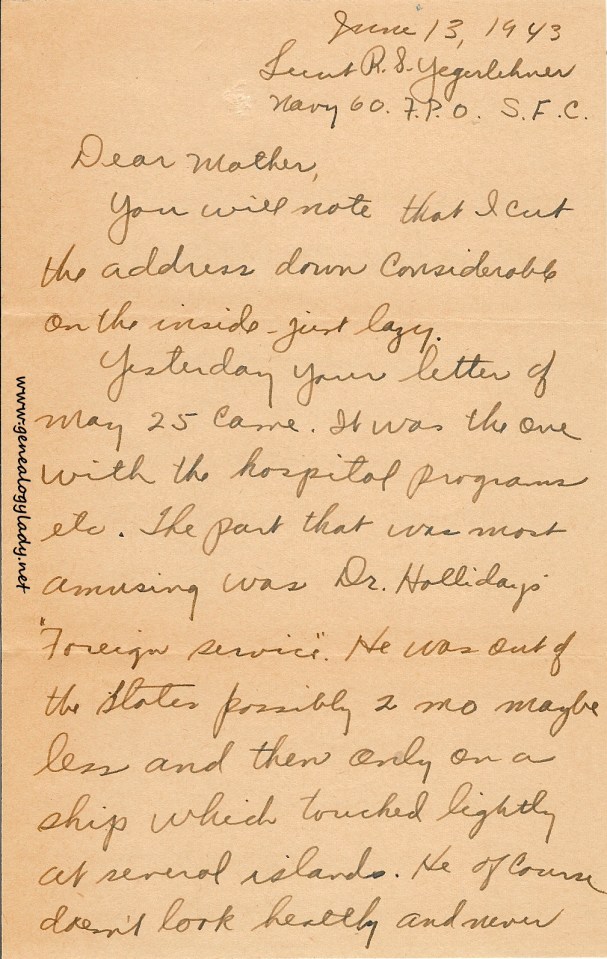 June 13, 1943
Lieut R.S. Yegerlehner
Navy 60. F.P.O. S.F.C.
Dear Mother,
You will note that I cut
the address down considerable
on the inside - just lazy.
Yesterday your letter of
May 25 came. It was the one
with the hospital programs
etc. The part that was most
amusing was Dr. Hollidays
"Foreign service". He was out of
the States possibly 2 mo maybe
less and then only on a
ship which touched lightly
at several islands. He of course
doesn't look healthy and never
www.genealogylady.net